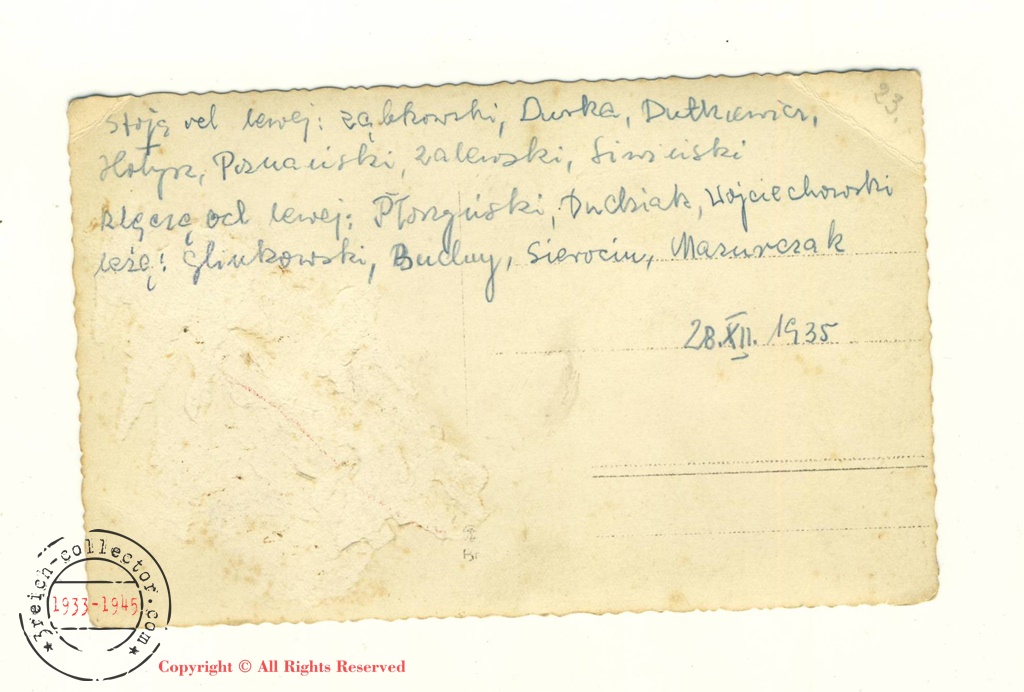 23.
Stoją od lewej: Ząbkowski, Durka, Dutkiewicz,
Hołysz, Poznański, Zalewski, Siwiński
klęczą od lewej: Płoszyński, Duchiak, Wojciechowski
leżą: Glinkowski, Buchny, Sierocin, Mazurczak
28.XII. 1935
3reich-collector.com
1933-1945
Copyright © All Rights Reserved